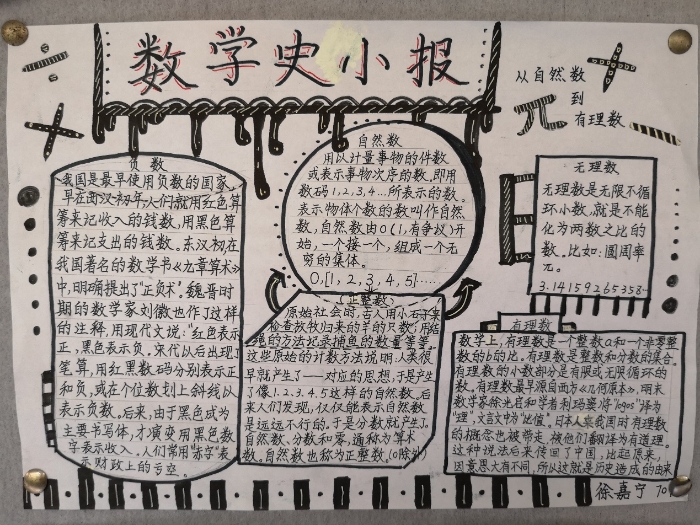 数学史小报
从自然数
到
有理数
π
负数
我国是最早使用负数的国家,
早在西汉初年,人们就用红色算
筹来记收入的钱数,用黑色算
筹来记支出的钱数。东汉初在
我国著名的数学书《九章算术》
中,明确提出了"正负术"。魏晋时
期的数学家刘徽也作了这样
的注释,用现代文说:"红色表示
正,黑色表示负。宋代以后出现了
笔算,用红黑数码分别表示正
和负,或在个位数划上斜线以
表示负数。后来,由于黑色成为
主要书写体,才演变用黑色数
字表示收入。人们常用"赤字"表
示财政上的亏空。
自然数
用以计量事物的件数
或表示事物次序的数。即用
数码1,2,3,4…所表示的数。
表示物体个数的数叫作自然
数,自然数由0(1,有争议)开
始,一个接一个,组成一个无
穷的集体。
0,[1,2,3,4,5]……
(正整数)
原始社会时,古人用小石子
检查放牧归来的羊的只数;用结
绳的方法记录捕鱼的数量等等。
这些原始的计数方法说明:人类很
早就产生了一一对应的思想,于是产生
了像1.2.3.4.5这样的自然数。后
来人们发现,仅仅能表示自然数
是远远不行的。于是分数就产生了。
自然数、分数和零,通称为算术
数。自然数也称为正整数。(0除外)
无理数
无理数是无限不循
环小数,就是不能
化为两数之比的
数。比如:圆周率
π。
3.14159265358…
有理数
数学上,有理数是一个整数a和一个非零整
数的比。有理数是整数和分数的集合。
有理数的小数部分是有限或无限循环的
数。有理数最早源自西方《几何原本》,明末
数学家徐光启和学者利玛窦将"logos"译为
"理",文言文中为"比值"。日本人来我国时有理数
的概念也被带走,被他们翻译为有道理。
这种说法后来传回了中国,比起原来,
因意思大有不同,所以这就是历史造成的由来
徐嘉宁 70